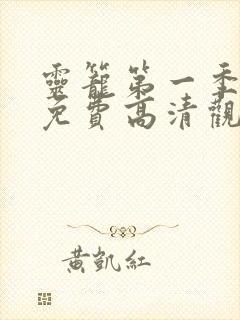 靈籠第一季
免費高清觀
黃凱紅